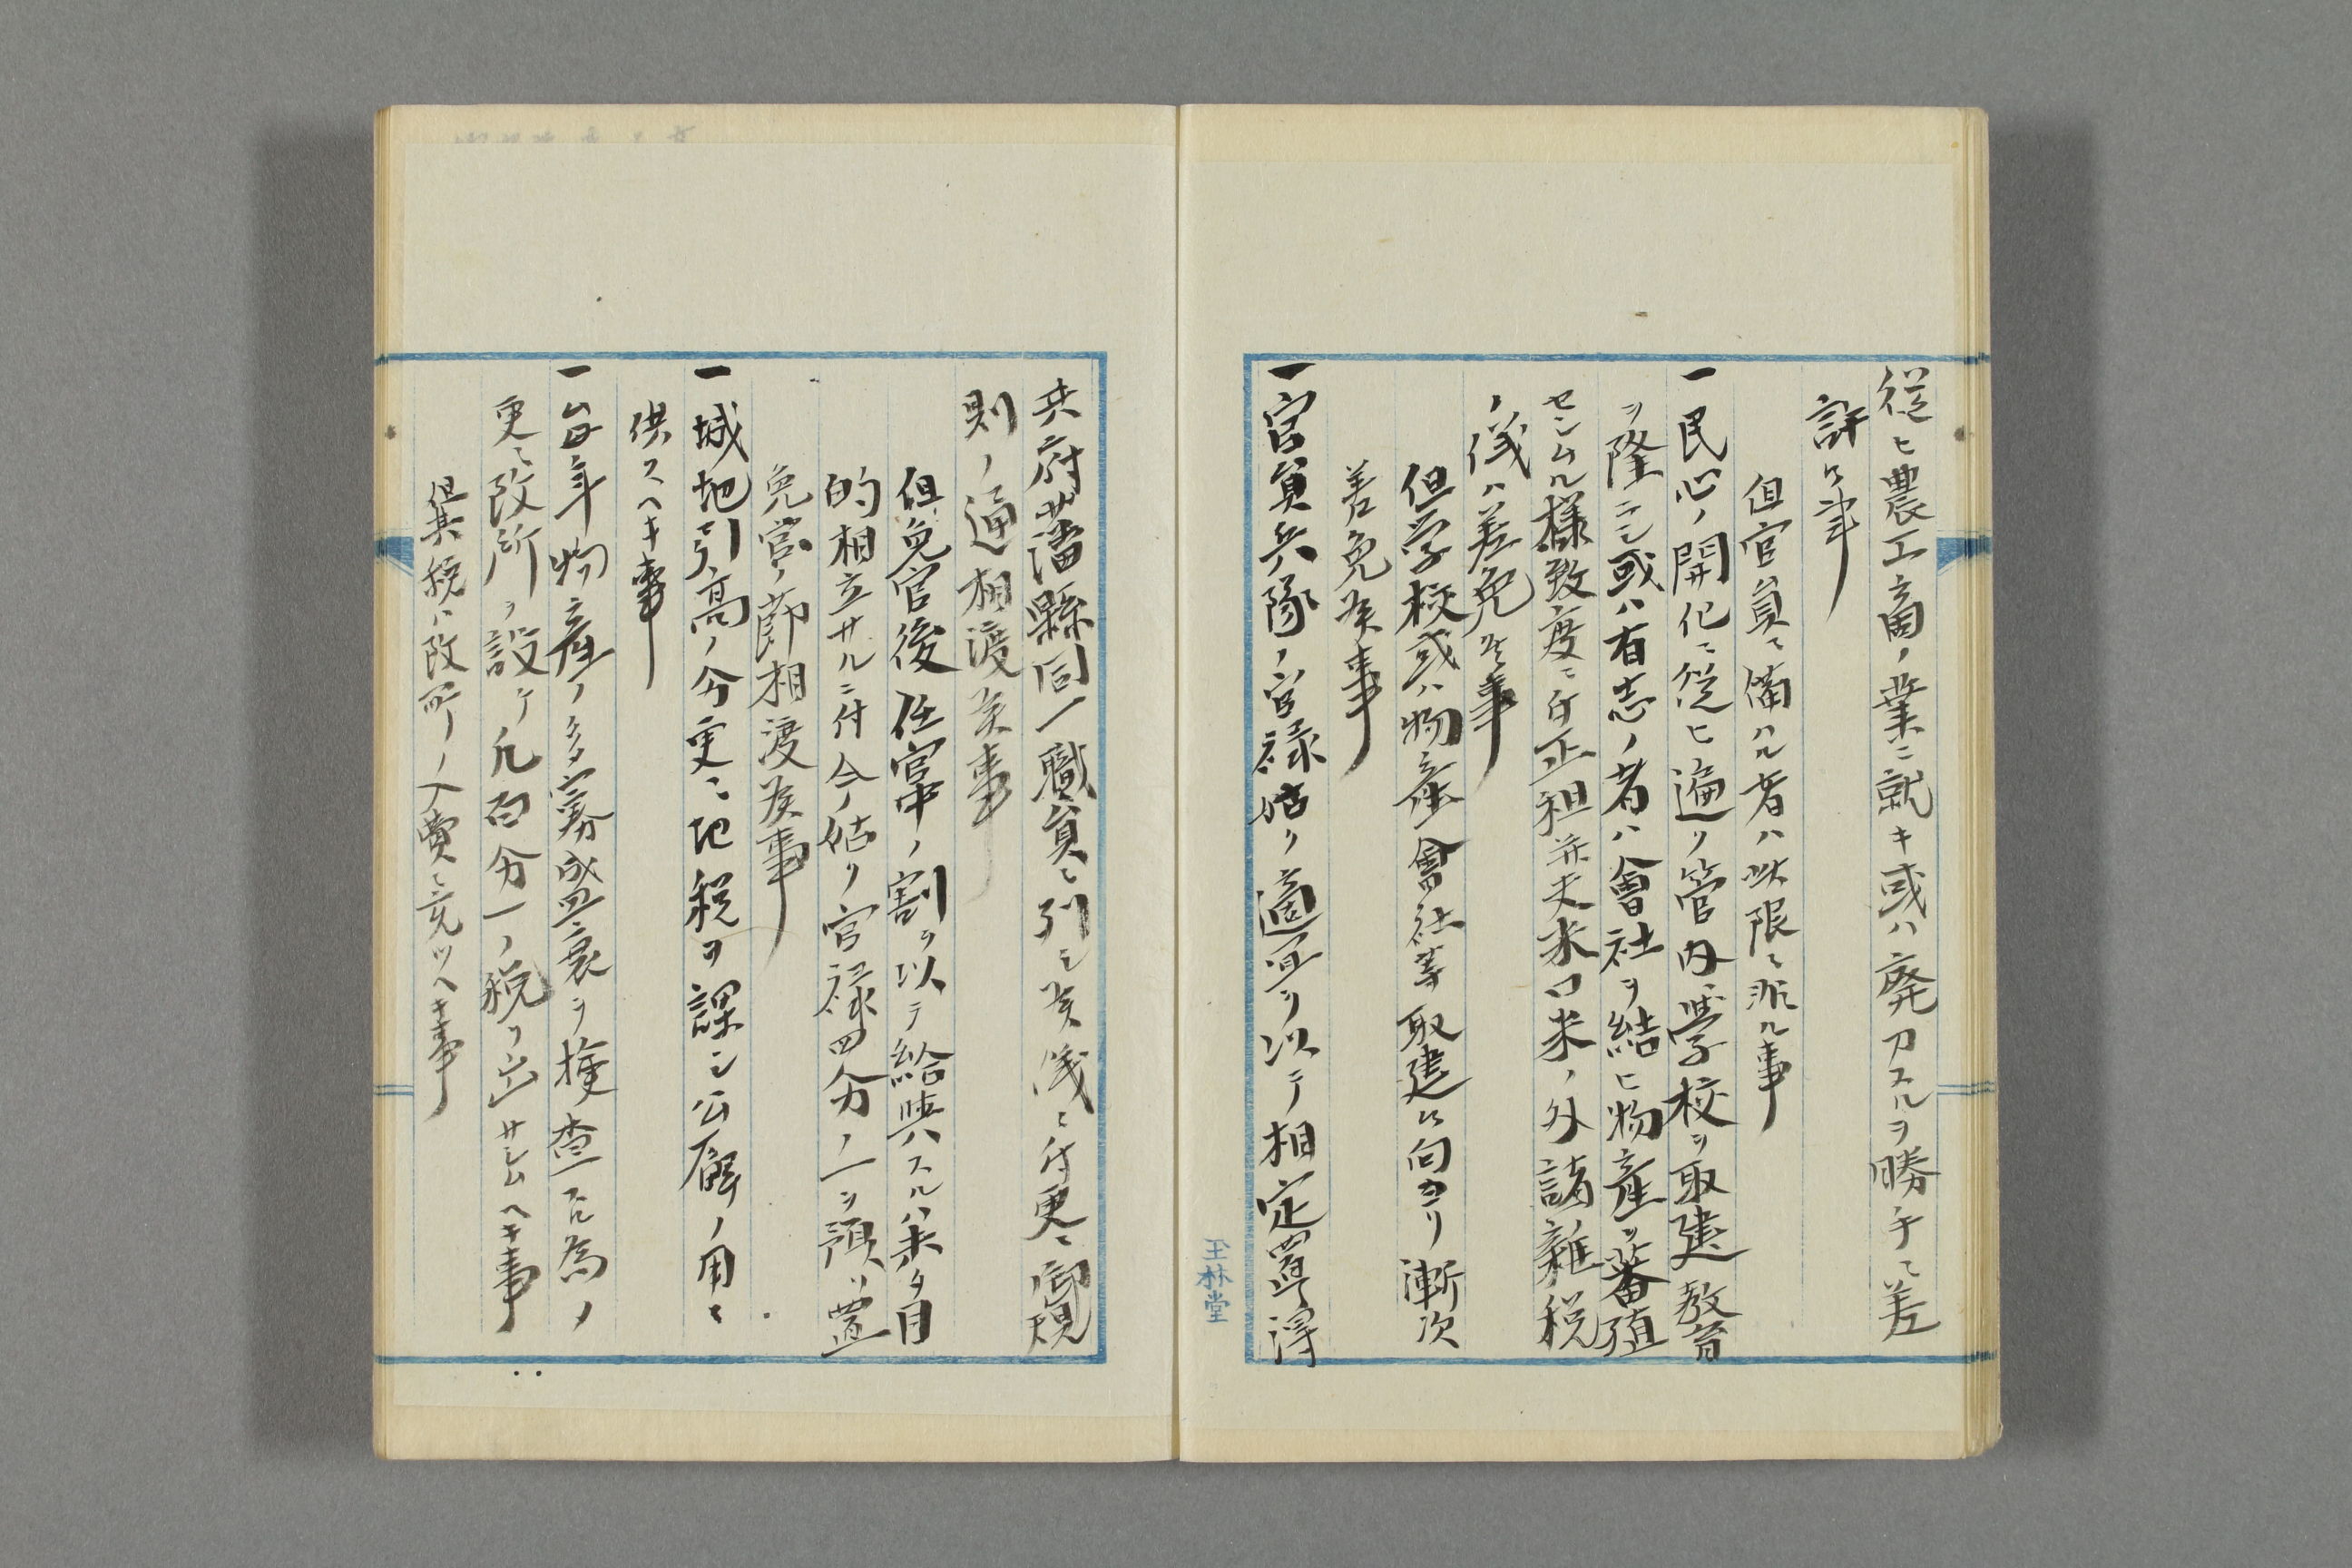 従ヒ農工商ノ業ニ就キ或ハ廃刀スルヲ勝手ニ差
許ス事
但官員ニ備ハル者ハ此限ニ非ル事
一民心ノ開化ニ従ヒ遍ク管内ニ学校ヲ取建教育
ヲ隆ニシ或ハ有志ノ者ハ會社ヲ結ヒ物産ヲ蕃殖
セシムル様致度ニ付正租并夫米口米ノ外諸雑税
ノ儀ハ差免候事
但学校或ハ物産會社等取建ニ向カリ漸次
差免候事
一官員兵隊ノ官禄始ク適宜ヲ以テ相定置候得
共府藩縣同一職員ニ引直シ候儀ニ付更ニ御規
則ノ通相渡候事
但免官後任官中ノ割ヲ以テ給與スルハ未タ目
的相立サルニ付今ノ始リ官禄四分ノ一ヲ預リ置
免官ノ節相渡候事
一城地引高ノ分更ニ地税ヲ課シ公廨ノ用ニ
供スヘキ事
一毎年物産ノ多寡盛衰ヲ検査スル為ノ
更ニ改所ヲ設ケ凡百分一ノ税ヲ出サシムヘキ事
但其税ハ改所ノ入費ニ充ツヘキ事
玉林堂